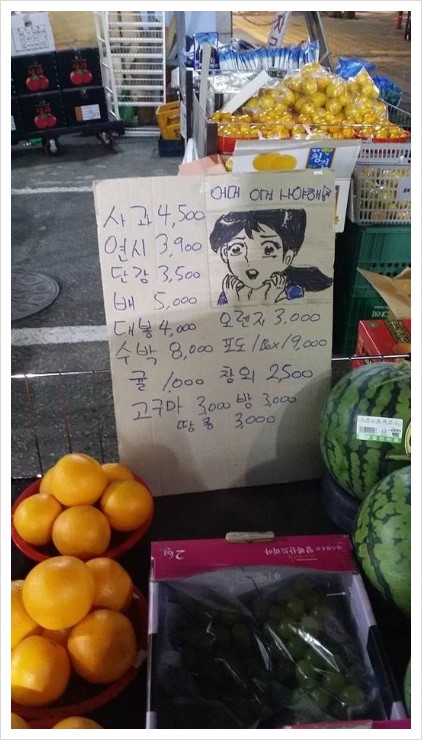 어머 이건 사야해
사과 4,500
연시 3,900
단감 3,500
배 5,000
대봉 4,000 오렌지 3,000
수박 8,000 포도 1Box 19,000
귤 1,000 참외 2,500
고구마 3,000 밤 3,000
땅콩 3,000